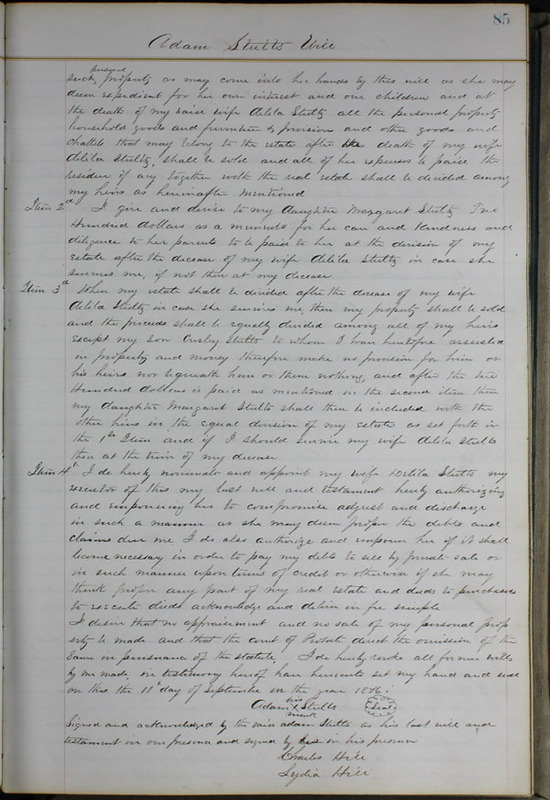 85
Adam Stults Will
personal
such property as may come into her hands by this will as she may
deem expedient for her own interest and our children and at
the death of my said wife Delila Stultz all the personal property
household goods and furniture & provision and other goods and
chattels that may belong to the estate after the death of my wife
Delila Stultz, shall be sold and all of her expenses be paid the
residue if any together with the real estate shall be divided among
my heirs as hereinafter mentioned
Item 2d I give and devise to my daughter Margaret Stultz Two
Hundred dollars as a for her care and kindness and
diligence to her parents to be paid to her at the division of my
estate after the decease of my wife Delila Stultz in case she
survives me, if not then at my decease
Item 3d When my estate shall be divided after the decease of my wife
Delila Stultz in case she survives me, then my property shall be sold
and the proceeds shall be equally divided among all of my heirs
except my son Stults to whom I have heretofore assisted
in property and money therefore make no provision for him or
his heirs nor bequeath him or them nothing, and after the two
Hundred dollars is paid as mentioned in the second item then
my daughter Margaret Stults shall then be included with the
other heirs in the equal division of my estate as set forth in
the 1st Item and if I should survive my wife Delila Stults
then at the time of my decease
Item 4th I do hereby nominate and appoint my wife Delila Stults my
executor of this my last will and testament hereby authorizing
and empowering her to compromise adjust and discharge
in such a manner as she may deem proper the debts and
claims due me I do also authorize and empower her if it shall
become necessary in order to pay my debts to sell by private sale or
in such manner upon terms of credit or otherwise if she may
think proper any part of my real estate and deeds to purchasers
to execute deeds acknowledge and deliver in fee simple
I desire that no appraisement and no sale of my personal prop
erty be made and that the court of Probate direct the omission of the
same in pursuance of the statute. I do hereby revoke all former wills
by me made, in testimony hereof have hereunto set my hand and seal
on this the 11 day of September in the year
his
Adam X Stults Seal
mark
Signed and acknowledged by the said Adam Stults as his last will and
testament in our presence and signed by in his presence
Charles Hill
Lydia Hill